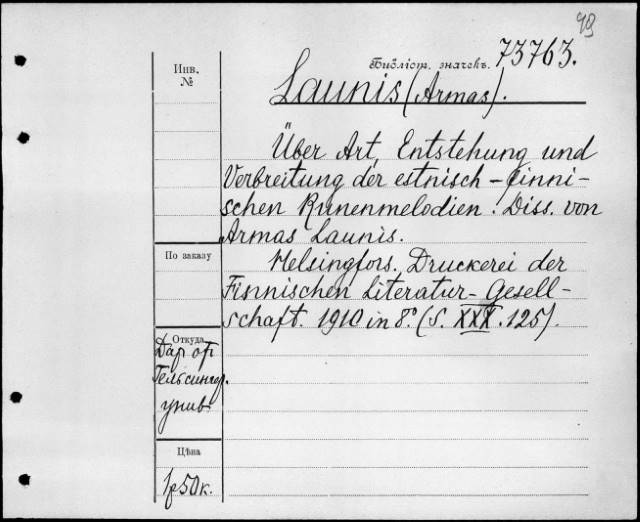 49
Библіот. значекъ. 73763.
Инв.
№
Launis (Armas).
Über Art, Entstehung und
Verbreitung der estnisch-finni-
schen Runenmelodien. Diss. von
Armas Launis.
По заказу
Helsingfors. Druckerei der
Finnischen Literatur-Gesell-
schaft. 1910 in 8.° (S. XXX. 125).
Откуда
Дар от
Гельсингф.
унив.
Цѣна
1р50к.